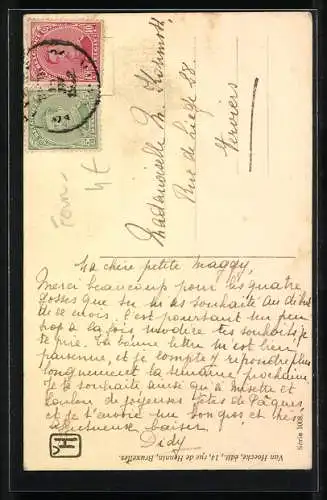 Mademoiselle M.
Rue de Liège 88
Verviers
Ma chère petite Maggy,
Merci beaucoup pour les quatre
gosses que tu m'as souhaité au début
de ce mois. C'est pourtant un peu
trop à la fois modère tes souhaits je
te prie. Ta bonne lettre m'est bien
parvenue, et je compte y répondre plus
longuement la semaine prochaine.
Je te souhaite ainsi qu'à Musette et
Loulou de joyeuses fêtes de Pâques
et je t'envoie un bon gros et très
affectueux baiser.
Didy
Van Hoecke, édit., 14, rue de Hennin, Bruxelles.
Série 1008.
4 €